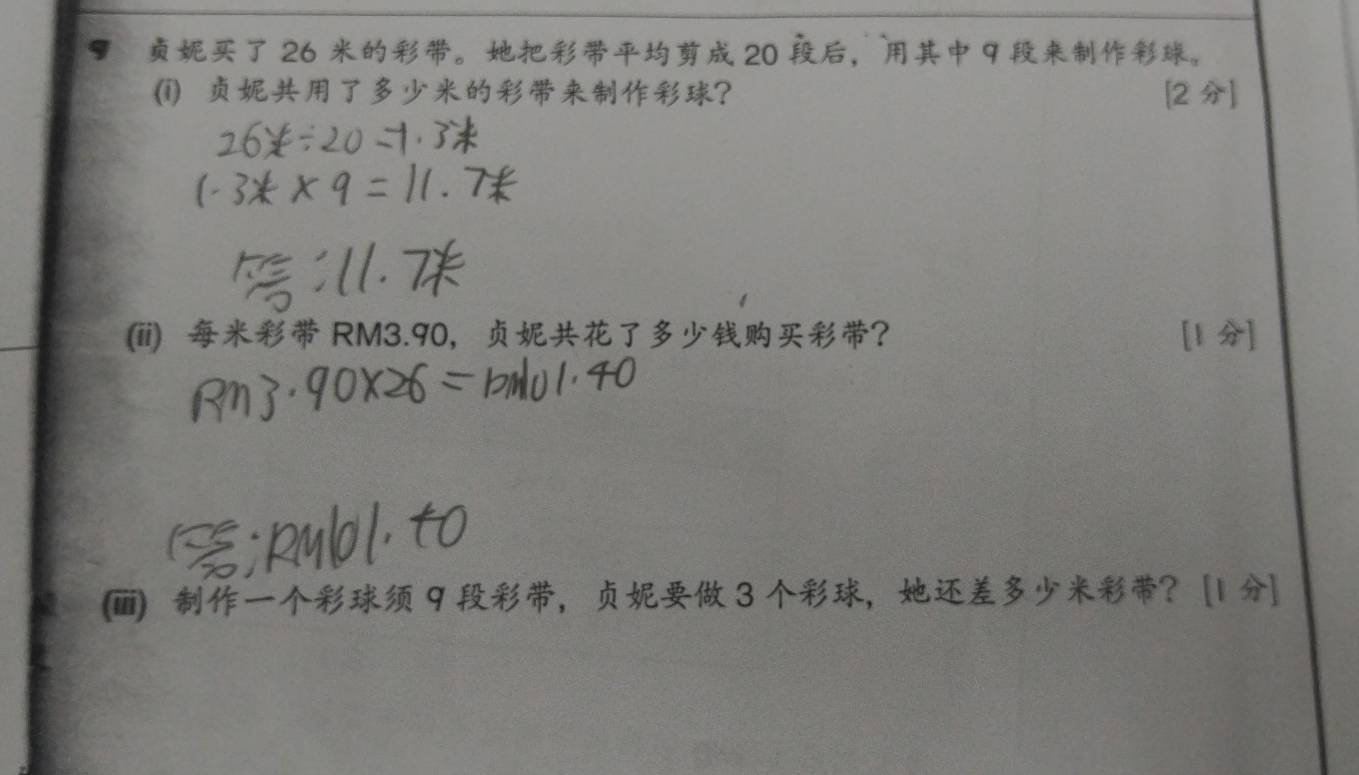 9 贞妮买了 26 米的彩带。她把彩带平均剪成 20 段后，用其中 9 段来制作彩球。
(i) 贞妮共用了多少米的彩带来制作彩球？ [2 分]
26米÷20=1.3米
1.3米×9=11.7米
答:11.7米
(ii) 每米彩带 RM3.90，贞妮共花了多少钱购买彩带？ [1 分]
RM3.90×26=RM101.40
答:RM101.40
(iii) 制作一个彩球须 9 段彩带，贞妮要做 3 个彩球，她还差多少米彩带？ [1 分]